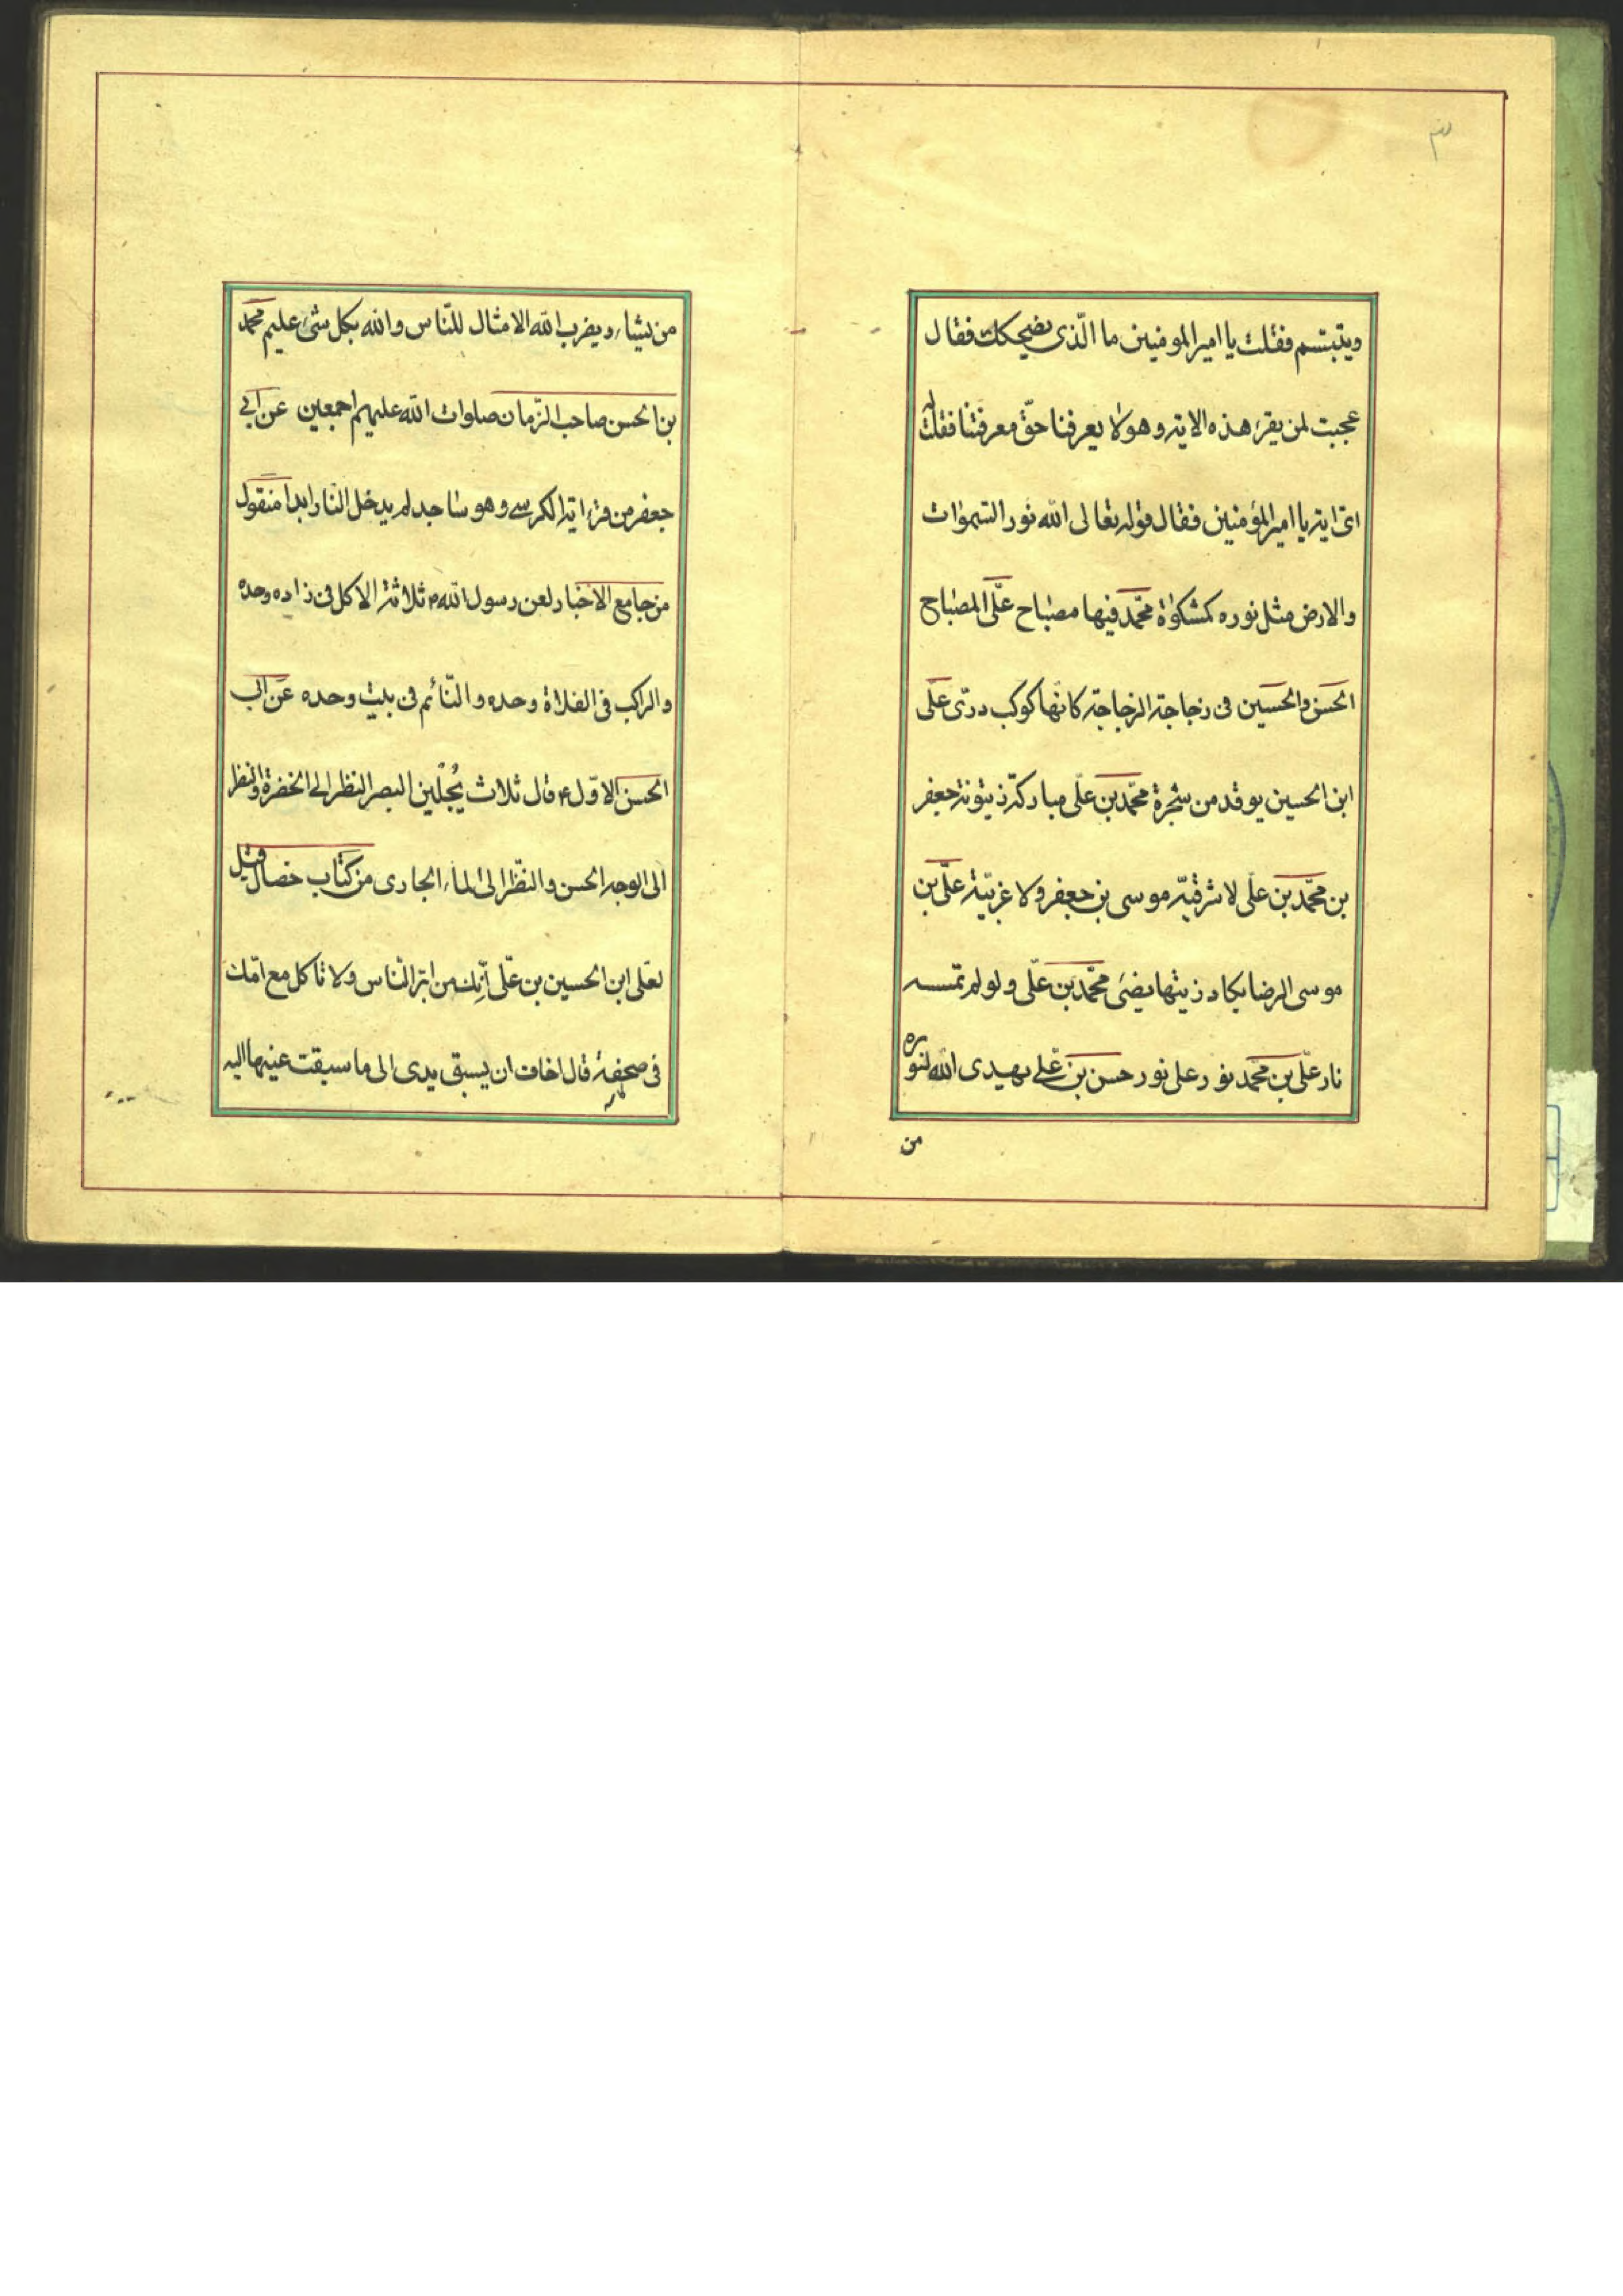 ۳
ويتبتسم فقلت يا امير المومنين ما الّذى يضحكك فقال
عجبت لمن يقرء هذه الاية وهو لا يعرفنا حقّ معرفتنا فقلت له
اىّ اية يا امير المؤمنين فقال قوله تعالى الله نور السّموات
والارض مثل نوره كمشكوٰة محمّد فيها مصباح علّى المصباح
الحسن والحسين فى زجاجة الزجاجة كانّها كوكب درّى علّى
ابن الحسين يوقد من شجرة محمّد بن علّى مباركة زيتونة جعفر
بن محمّد بن علّى لا شرقيّة موسى بن جعفر ولا غربيّة علّى بن
موسى الرضا يكاد زيتها يضئ محمّد بن علّى ولو لم تمسسه
نار علّى بن محمّد نور على نور حسن بن علّے يهدى الله لنوره
من
من يشاء ويضرب الله الامثال للنّاس والله بكل شئ عليم محمّد
بن الحسن صاحب الزّمان صلوات الله عليهم اجمعين عن ابى
جعفر من قرء اية الكرسے وهو ساجد لم يدخل النّار ابدا منقول
من جامع الاخبار لعن رسول الله ثلاثة الاكل فى زاده وحده
والراكب فى الفلاة وحده والنّائم فى بيت وحده عن ابى
الحسن الاوّل ع قال ثلاث يُجلّين البصر النظر الى الخضرة والنظر
الى الوجه الحسن والنظّر الى الماء الجارى من كتاب خصال قيل
لعلى ابن الحسين بن علّى انّك من ابرّ النّاس ولا تاكل مع امّك
فى صحفة قال اخاف ان يسبق يدى الى ما سبقت عينها اليه